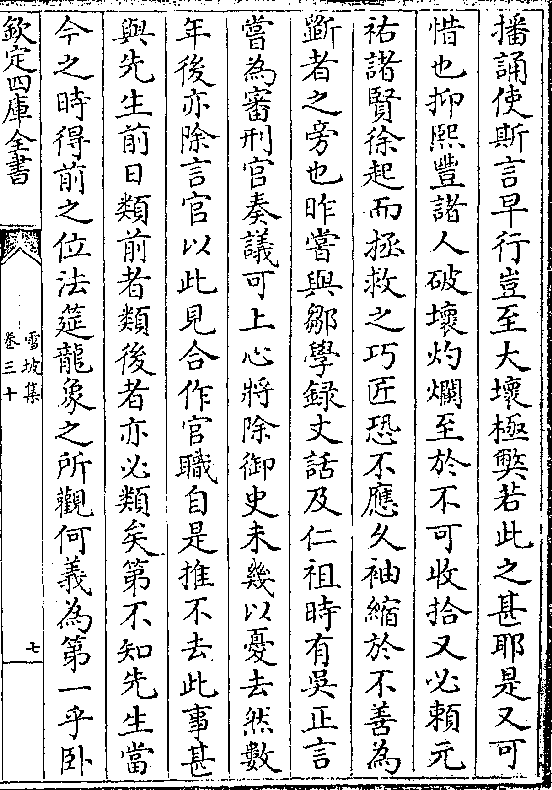 播誦使斯言早行豈至大壞極弊若此之甚耶是又可
惜也抑熙豐諸人破壞灼爛至於不可收拾又必賴元
祐諸賢徐起而拯救之巧匠恐不應久袖縮於不善為
斵者之旁也昨嘗與鄒學録丈話及仁祖時有吳正言
嘗為審刑官奏議可上心將除御史未幾以憂去然數
年後亦除言官以此見合作官職自是推不去此事甚
與先生前日類前者類後者亦必類矣第不知先生當
今之時得前之位法筵龍象之所觀何義為第一乎卧
欽定四庫全書
雪坡集
卷三十
七